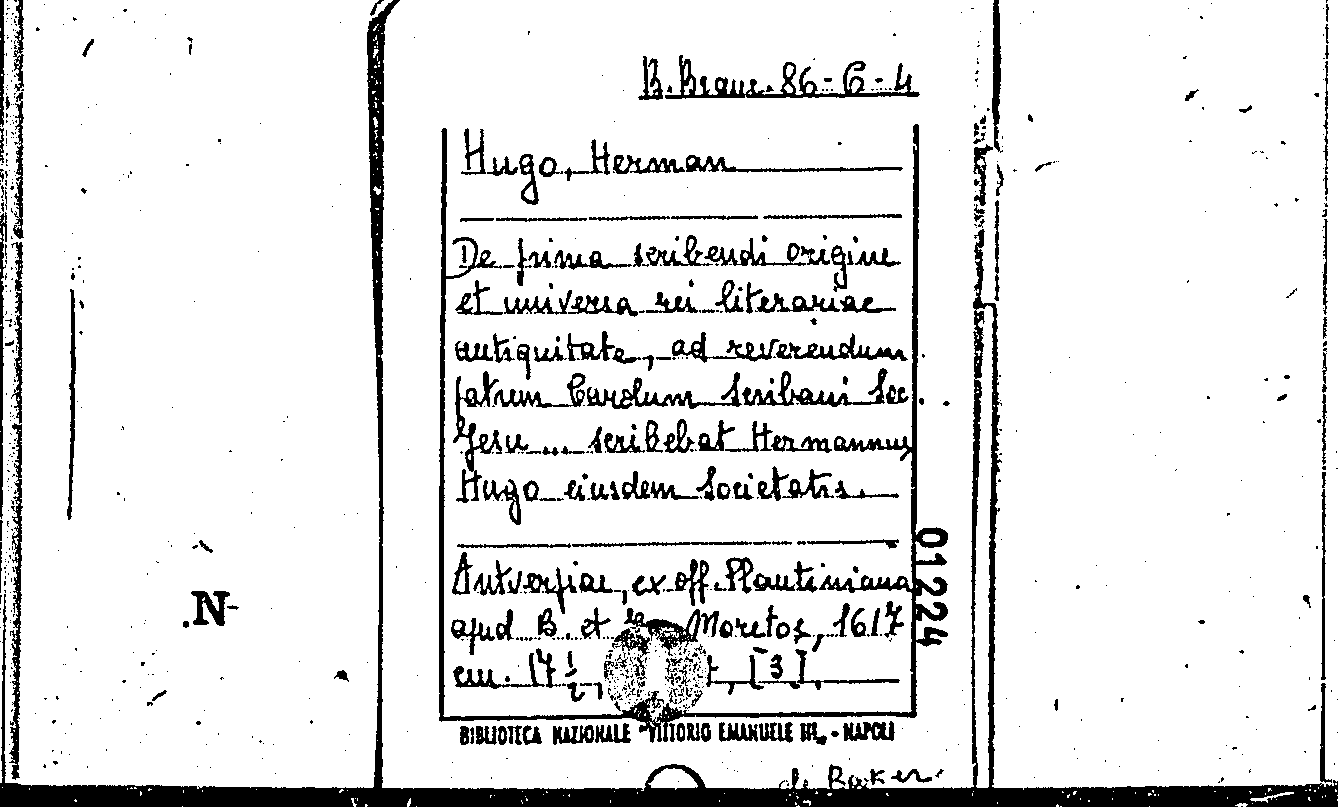 B. Branc. 86-6-4
Hugo, Herman
De prima scribendi origine
et universa rei literariae
antiquitate, ad reverendum
patrem Carolum Scribani Soc.
Jesu ... scribebat Hermannus
Hugo eiusdem Societatis.
Antverpiae, ex off. Plantiniana
apud B. et Moretos, 1617
cm. 17 1/2, , [3].
01224
.N-
BIBLIOTECA NAZIONALE "VITTORIO EMANUELE III„ - NAPOLI
de Backer